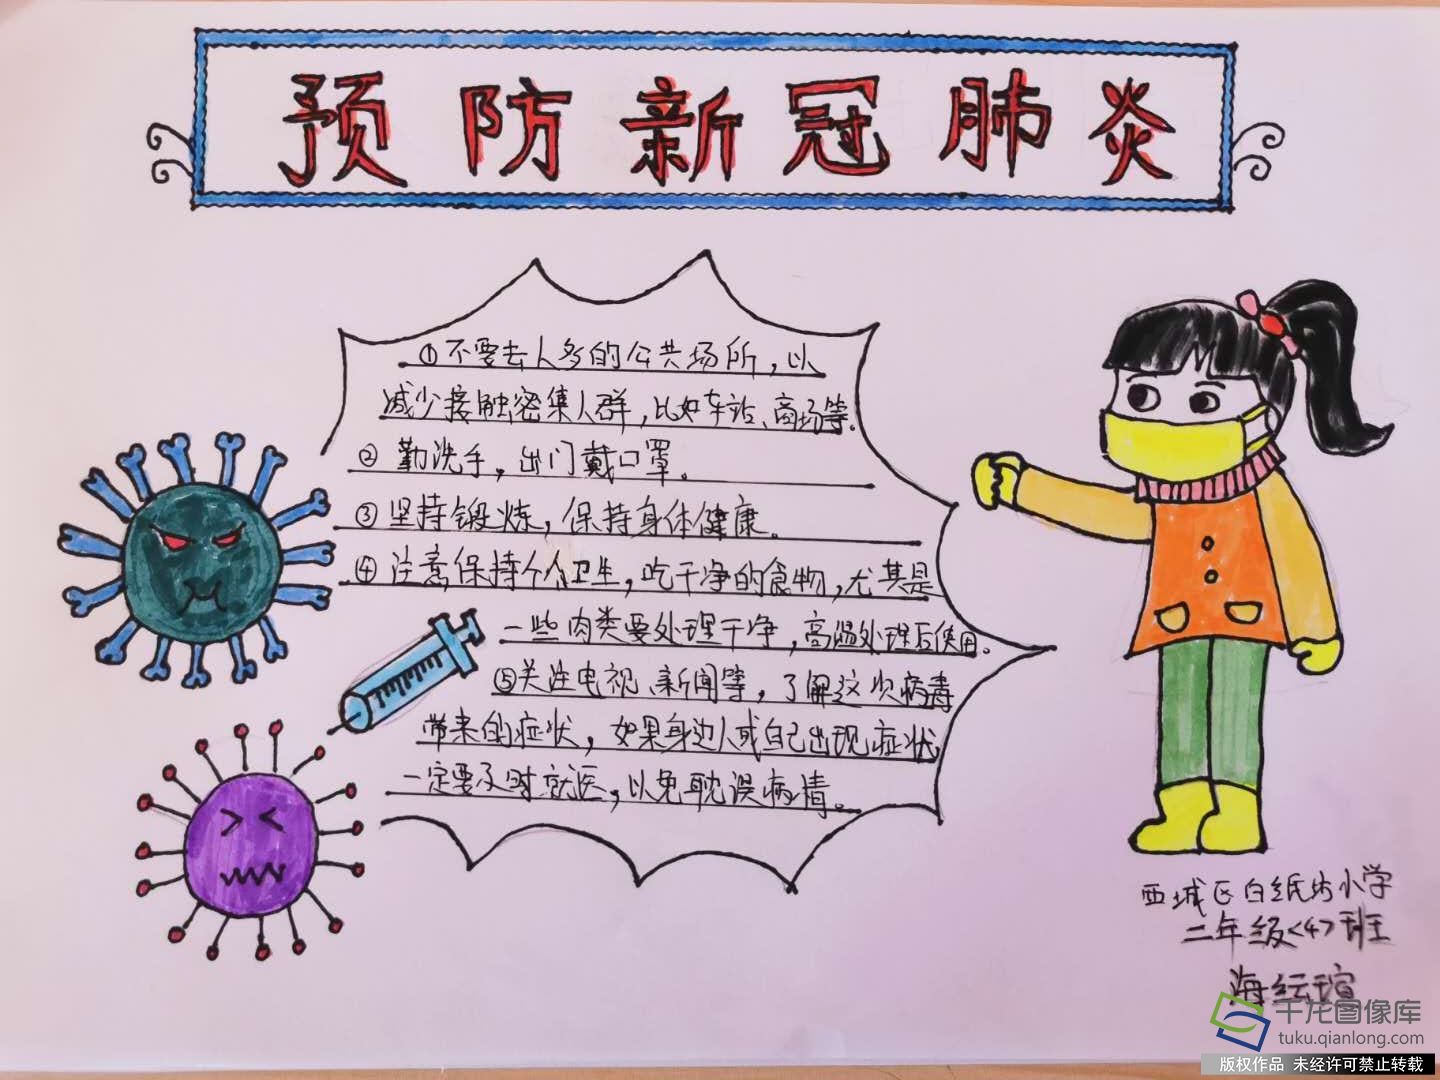 预防新冠肺炎
①不要去人多的公共场所，以
减少接触密集人群，比如车站、商场等。
② 勤洗手，出门戴口罩。
③坚持锻炼，保持身体健康。
④注意保持个人卫生，吃干净的食物，尤其是
一些肉类要处理干净，高温处理后使用。
⑤关注电视、新闻等，了解这次病毒
带来的症状，如果身边人或自己出现症状
一定要及时就医，以免耽误病情。
西城区白纸坊小学
二年级<4>班
海纭瑄
千龙图像库
tuku.qianlong.com
版权作品 未经许可禁止转载